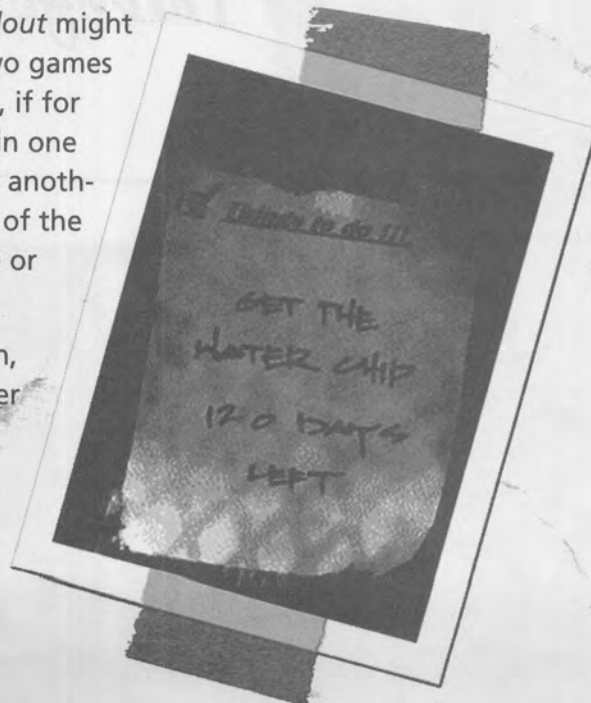 lout might
wo games
, if for
in one
anoth-
of the
or
n,
er
Things to do !!!
GET THE
WATER CHIP
120 DAYS
LEFT